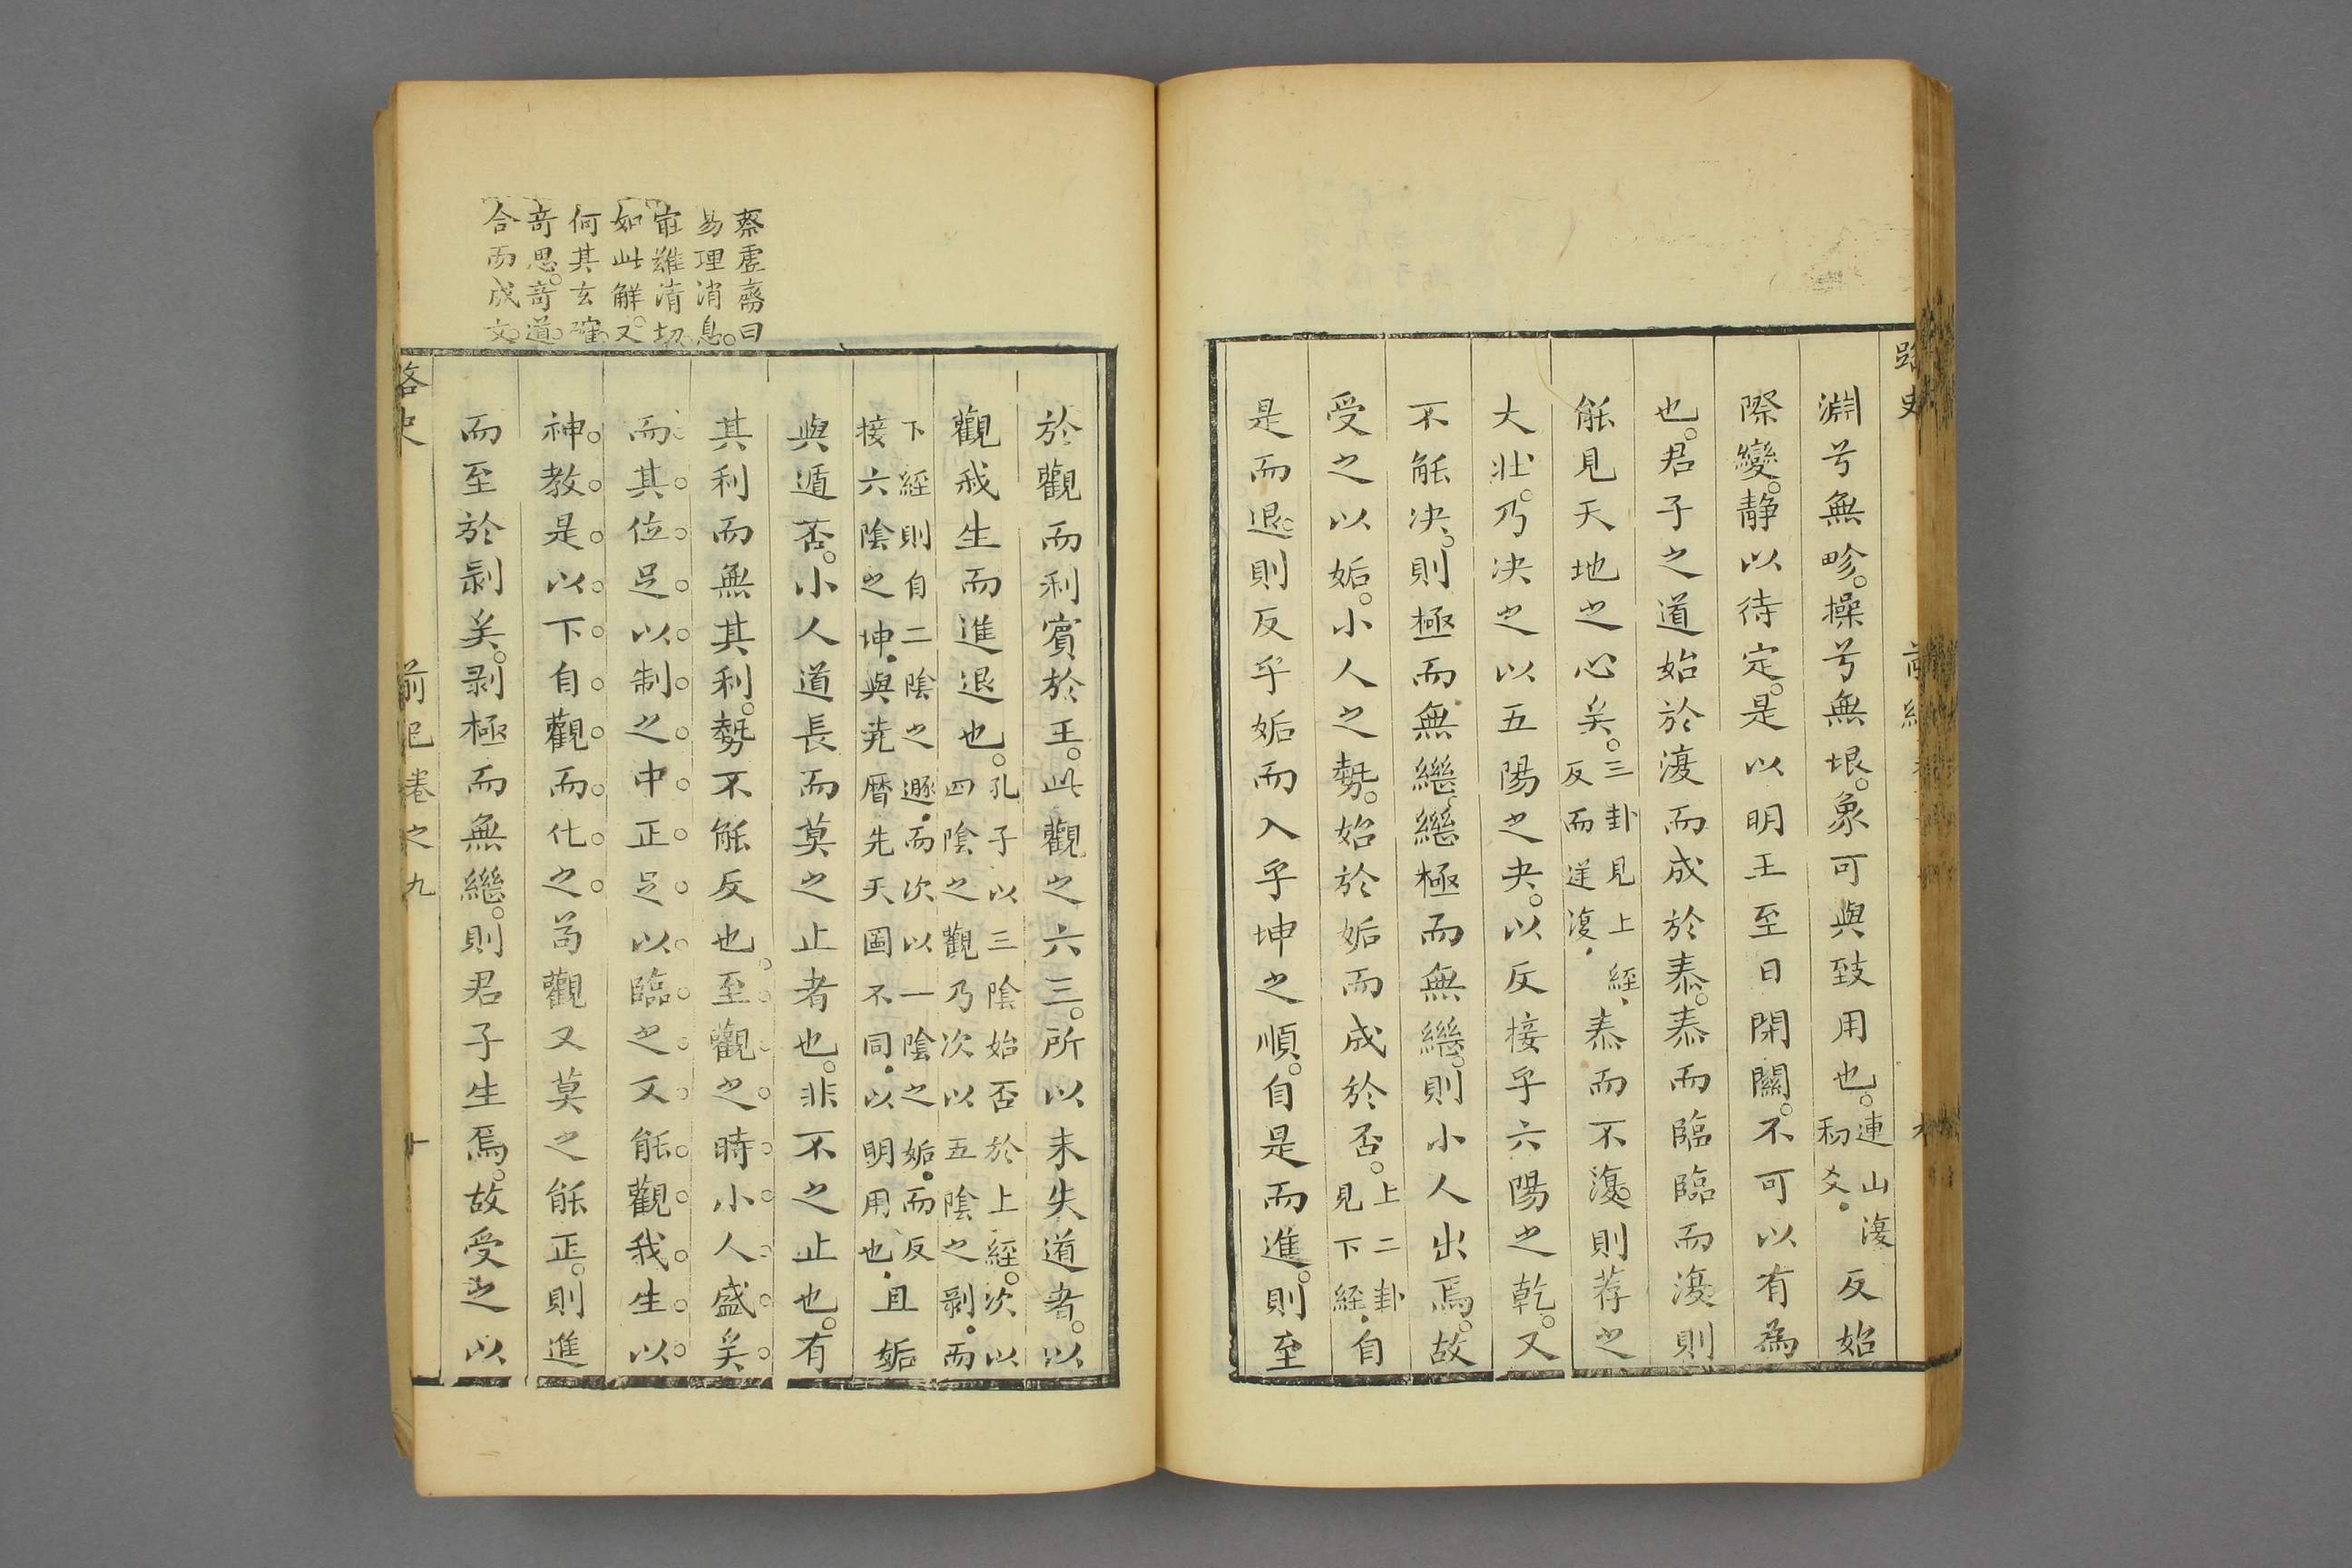 淵兮無畛。操兮無垠。象可與致用也。連山復初爻。反始
際變。靜以待定。是以明王至日閉關。不可以有為
也。君子之道始於復而成於泰。泰而臨臨而復則
能見天地之心矣。三卦見上經，反而逆復，泰而不復。則荐之
大壯。乃决之以五陽之夬。以反接乎六陽之乾。又
不能决。則極而無繼繼極而無繼。則小人出焉。故
受之以姤。小人之勢。始於姤而成於否。上二卦見下經，自
是而退。則反乎姤而入乎坤之順。自是而進。則至
於觀而利賓於王。此觀之六三。所以未失道者。以
觀我生而進退也。孔子以三陰始否於上經。次以四陰之觀乃次以五陰之剝。而
下經則自二陰之遯，而次以一陰之姤。而反接六陰之坤，與堯曆先天圖不同，以明用也，且姤
與遁否。小人道長而莫之止者也。非不之止也。有
其利而無其利。勢不能反也。至觀之時小人盛矣
而其位足以制之中正足以臨之又能觀我生以
神教是以下自觀而化之苟觀又莫之能正。則進
而至於剝矣。剥極而無繼。則君子生焉。故受之以
路史
前紀卷之九
十
蔡虛齋曰
易理消息。
宦難清切
如此解。又
何其玄確
奇思。奇道。
合而成文。